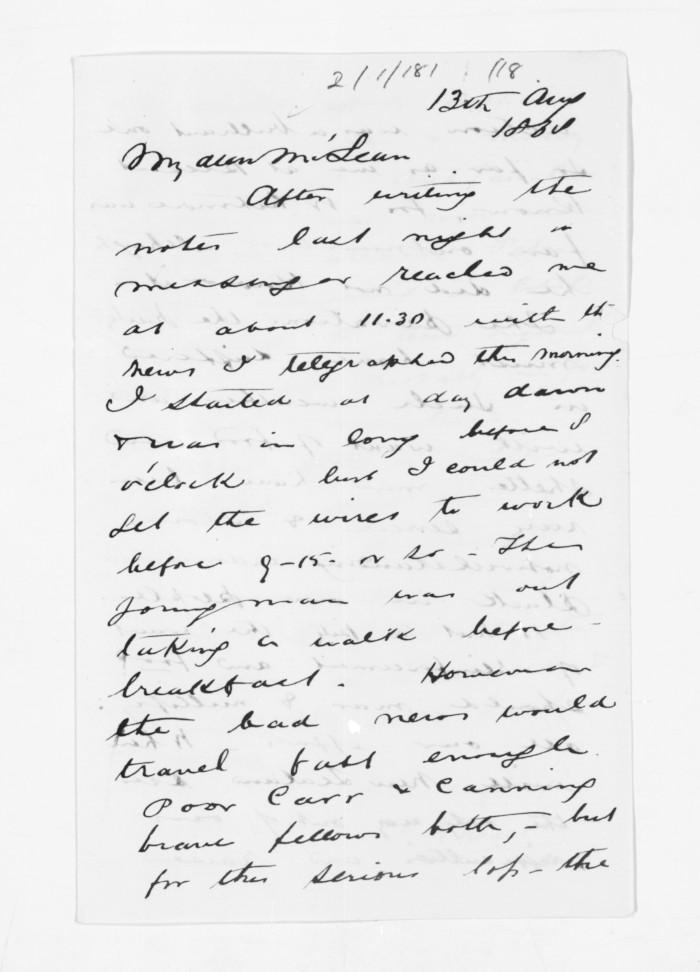 2/1/181 118
13th Aug
1868
My dear McLean
After writing the
notes last night a
messenger reached me
at about 11.30 with th
news I telegraphed this morning.
I started at day dawn
& was in long before 8
o'clock but I could not
get the wires to work
before 9-15- or so - The
young man was out
taking a walk before
breakfast. However
the bad news would
travel fast enough.
Poor Carr & Canning
brave fellows both, - but
for this serious loss - the